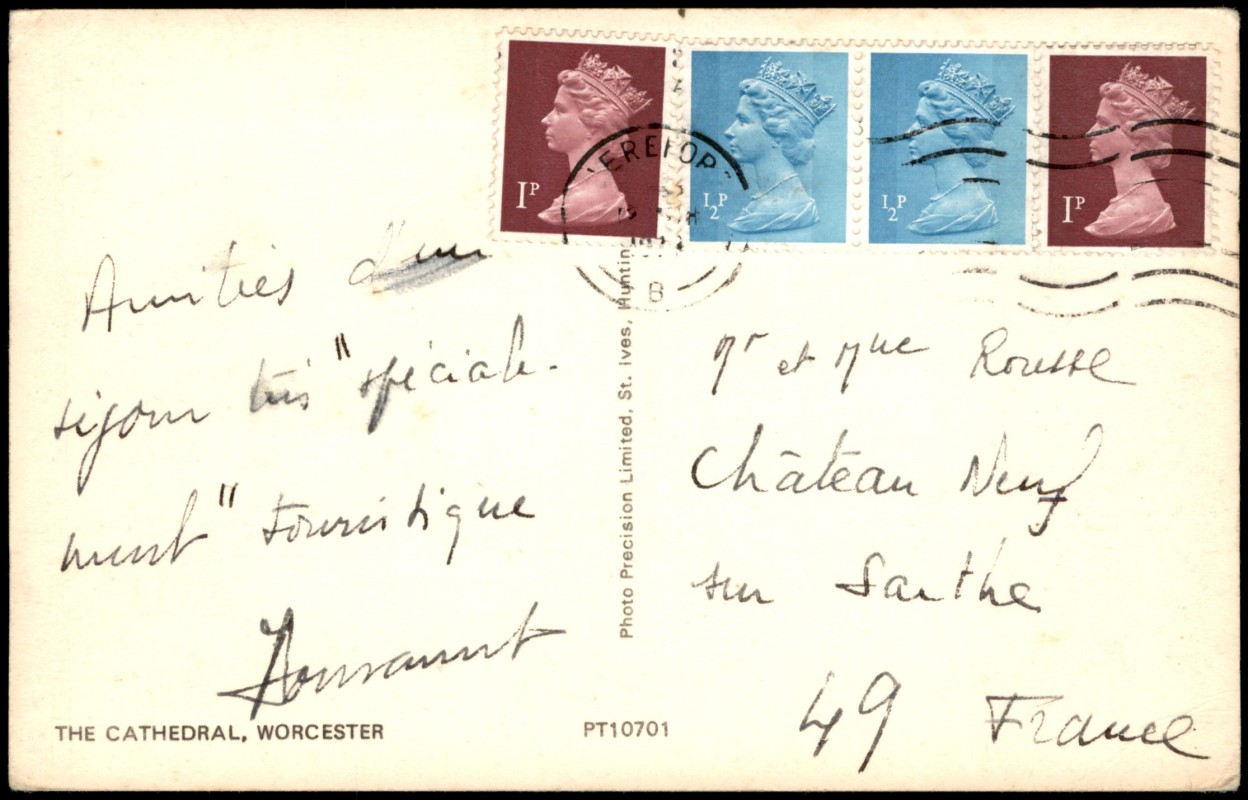 1P
½P
½P
1P
HEREFOR
B
Amitiés d'un
séjour très "spéciale-
ment" touristique
THE CATHEDRAL, WORCESTER
PT10701
Photo Precision Limited, St. Ives, Huntin
Mr et Mme Rousse
Château Neuf
sur Sarthe
49 France